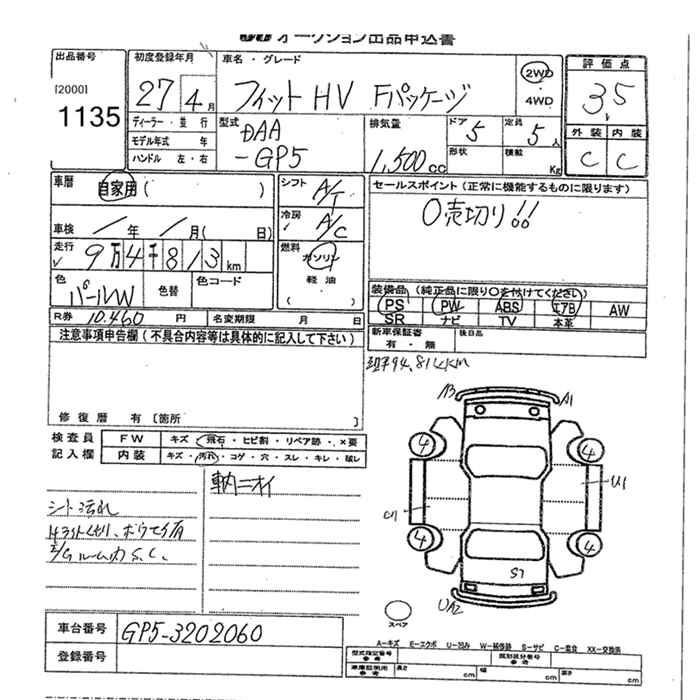 オークション出品申込書
出品番号
[2000]
1135
初度登録年月
27 4月
車名・グレード
フィットHV Fパッケージ
2WD
・4WD
評価点
3.5
外装 内装
C C
ディーラー・並行
モデル年式 年
ハンドル 左・右
型式
DAA
-GP5
排気量
1,500cc
ドア 5
定員 5人
形状
積載 Kg
車歴
自家用( )
車検 / 年 / 月( 日)
走行
9万4千813km
色
パールW
色替
色コード
シフト A/T
冷房 A/C
燃料
ガソリン
軽油
( )
セールスポイント(正常に機能するものに限ります)
○売切り!!
装備品(純正品に限り○を付けてください)
PS PW ABS エアB AW
SR ナビ TV 本革
R券 10,460円
名変期限 月 日
新車保証書
有・無
後日品
注意事項申告欄(不具合内容等は具体的に記入して下さい)
94,814KM
修復歴 有[箇所 ]
検査員
記入欄
FW キズ・飛石・ヒビ割・リペア跡・×要
内装 キズ・汚れ・コゲ・穴・スレ・キレ・破レ
シート汚れ
車内ニオイ
A3 A1
4 4
U1 U1
4 4
S7
UA2
スペア
車台番号 GP5-3202060
登録番号
A-キズ E-エクボ U-凹み W-補修跡 S-サビ C-腐食 XX-交換済
型式指定番号
参考
類別区分番号
参考
車庫証明用
参考
長さ cm 幅 cm 高さ cm